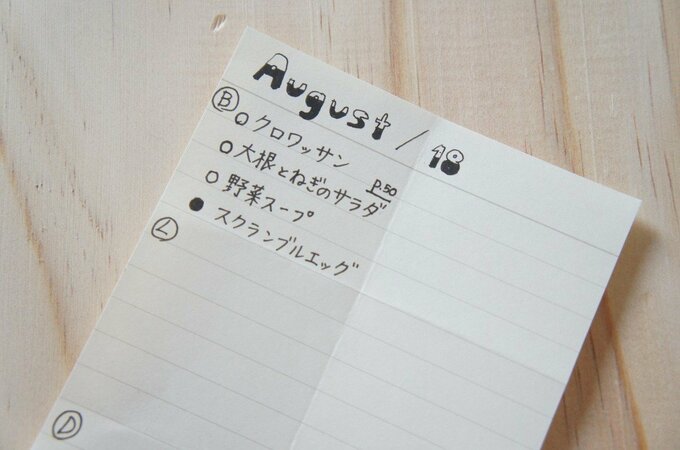 August / 18
Ⓑ ○ クロワッサン
○ 大根とねぎのサラダ p.50
○ 野菜スープ
● スクランブルエッグ
Ⓛ
Ⓓ